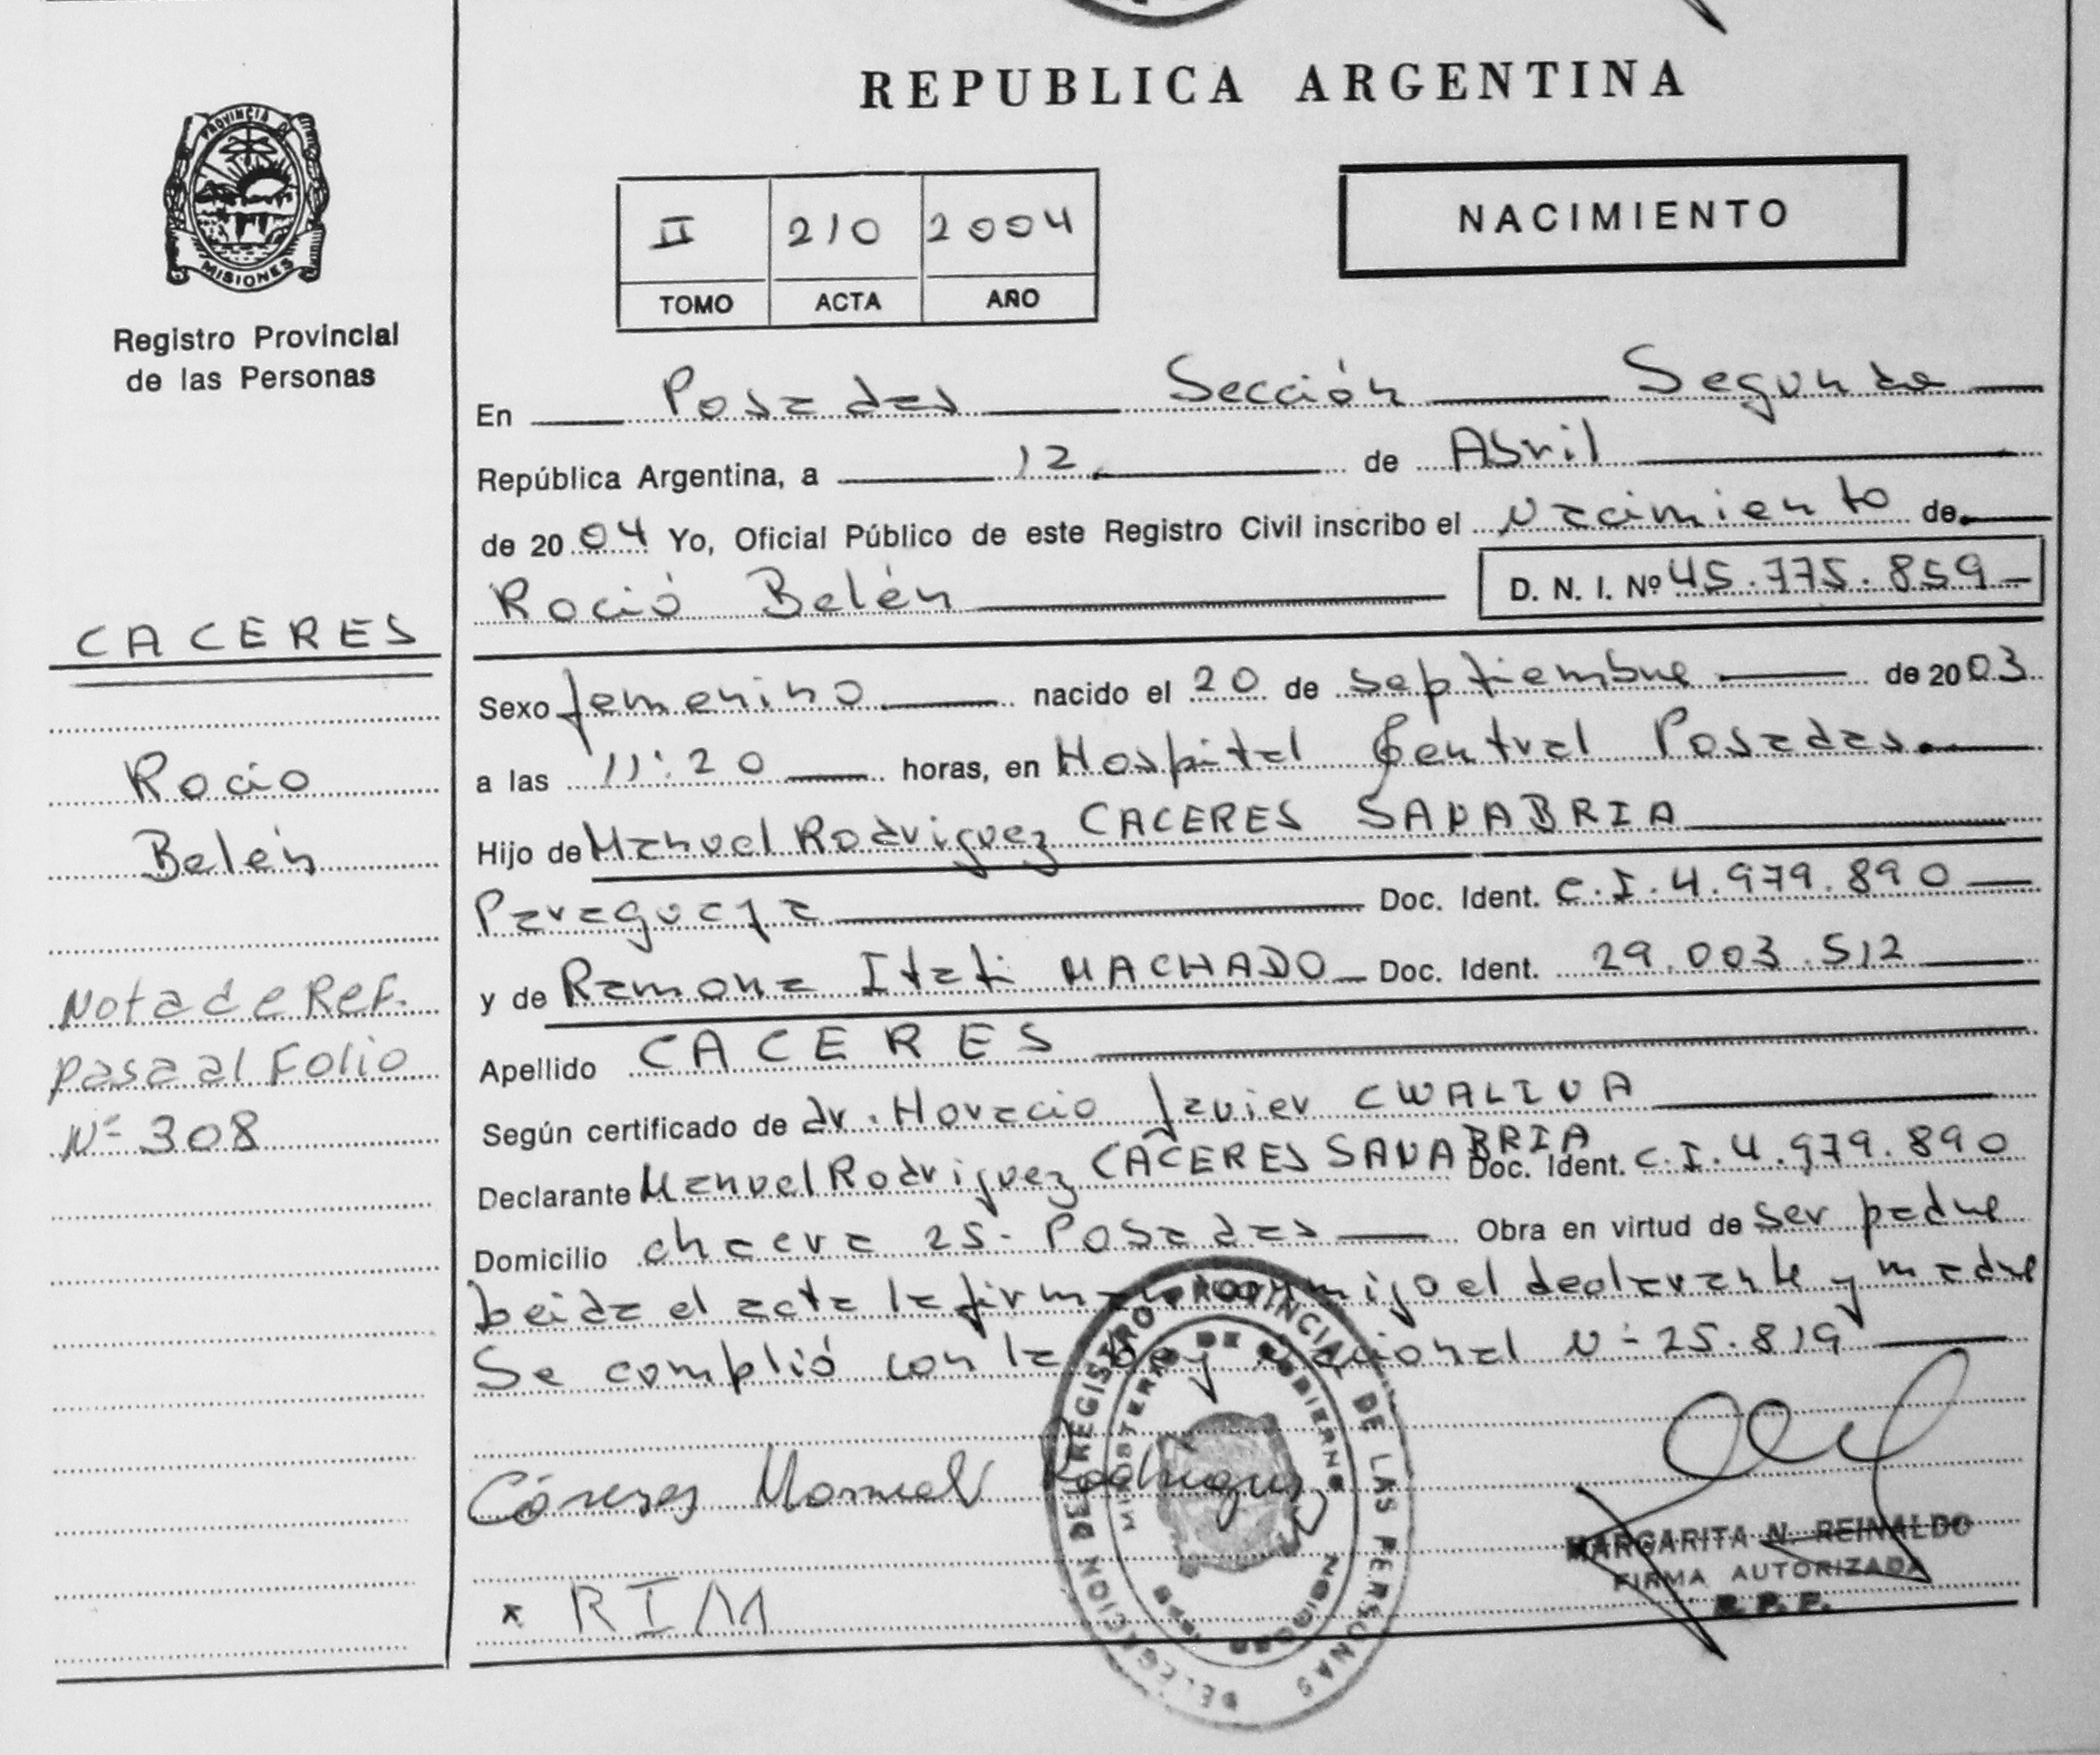 REPUBLICA ARGENTINA
PROVINCIA DE
MISIONES
Registro Provincial
de las Personas
II 210 2004
TOMO ACTA AÑO
NACIMIENTO
En Posadas Sección Segunda
República Argentina, a 12 de Abril
de 2004 Yo, Oficial Público de este Registro Civil inscribo el nacimiento de
Roció Belén D. N. I. Nº 45.775.859
CACERES
Rocio
Belén
Nota de Ref.
pasa al Folio
Nº 308
Sexo femenino nacido el 20 de septiembre de 2003
a las 11:20 horas, en Hospital Central Posadas.
Hijo de Manuel Rodriguez CACERES SANABRIA
Paraguaya Doc. Ident. C.I.4.979.890
y de Ramona Itati MACHADO Doc. Ident. 29.003.512
Apellido CACERES
Según certificado de dr. Horacio Javier CWALINA
Declarante Manuel Rodriguez CACERES SANABRIA Doc. Ident. C.I.4.979.890
Domicilio chacra 25- Posadas Obra en virtud de ser padre
Leida el acta la firman conmigo el declarante y madre
Se complió con la Ley Nacional Nº 25.819
Cáseres Manuel Rodriguez
DELEGACION DEL REGISTRO PROVINCIAL DE LAS PERSONAS
MINISTERIO DE GOBIERNO
MISIONES
MARGARITA N. REINALDO
FIRMA AUTORIZADA
R. P. P.
x RIM